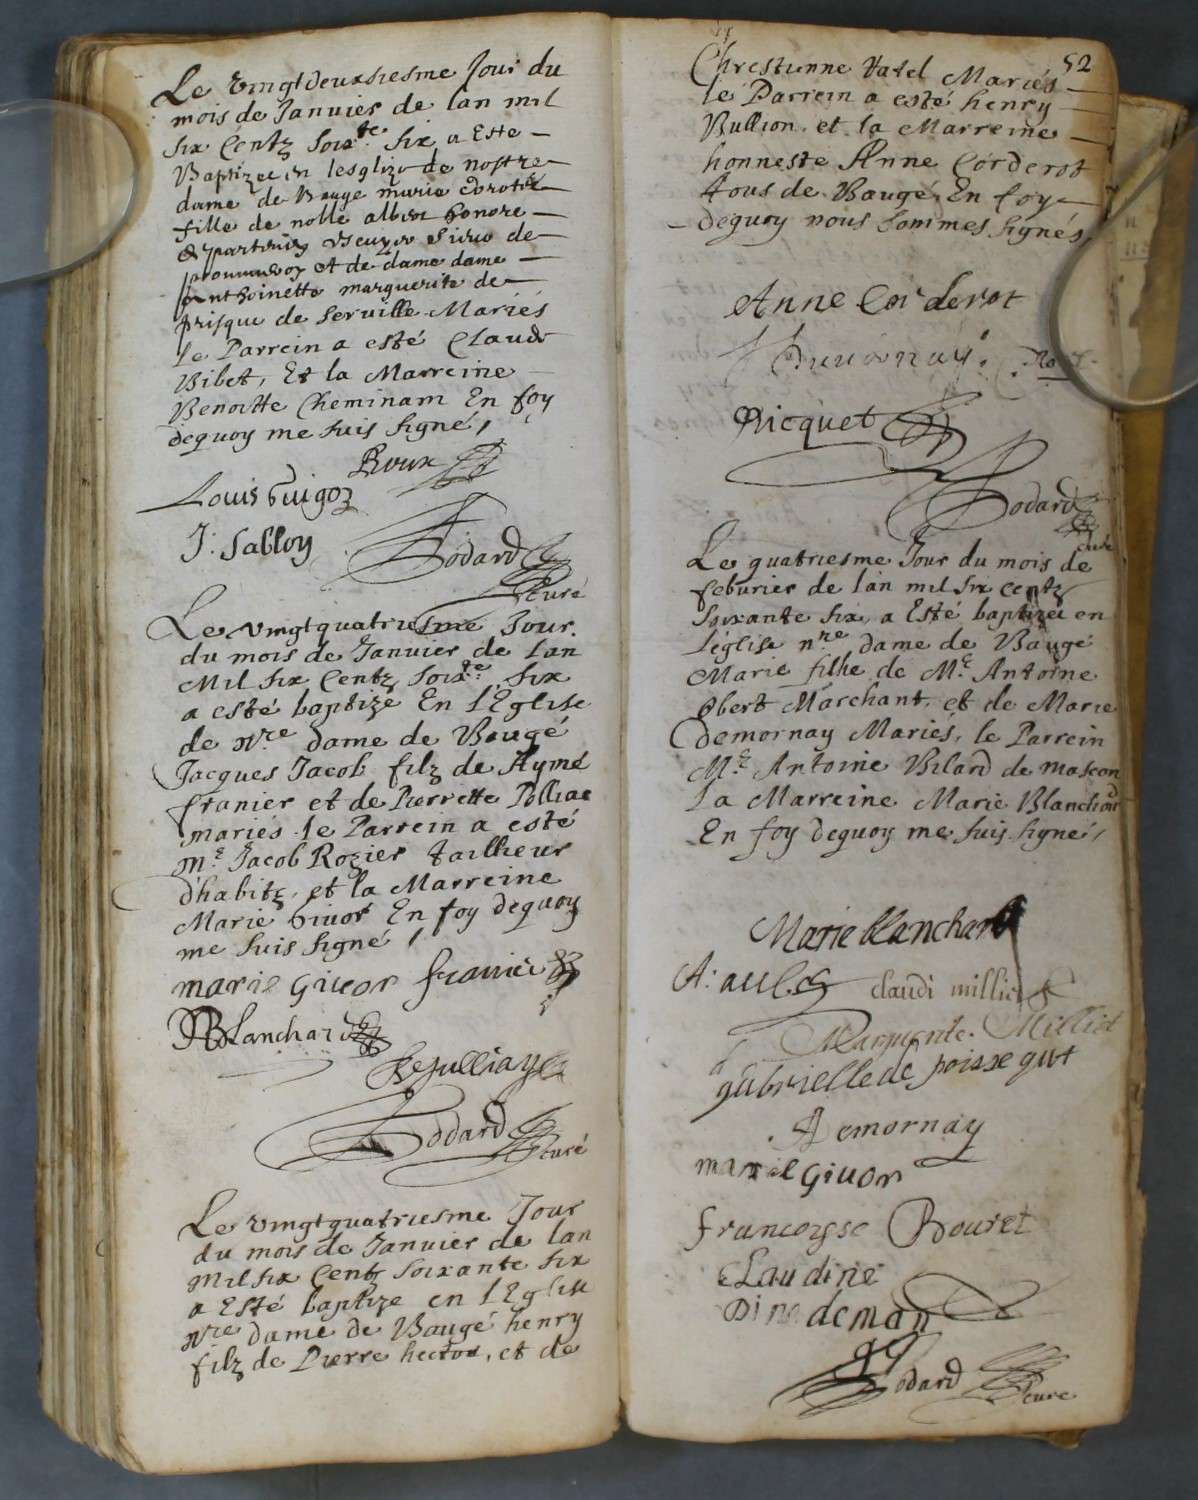 Le vingtdeuxsiesme Jour du
mois de Januier de lan mil
six Centz soixte. six a Este
Baptizee en lesglize de nostre
dame de Bauge marie
fille de noble albert honore
sieur de
et de dame dame
anthoinette marguerite de
prisque de serville Mariés
le Parrein a esté Claude
Bibet, Et la Marreine
Benoitte Cheminam En foy
dequoy me suis signé,
Roux
Louis Guigoz
J: Sabloy
Godard
Curé
Le vingtquatriesme Jour.
du mois de Januier de Lan
Mil six Centz soixte. six
a esté baptize En lEglise
de nre dame de Baugé
Jacques Jacob filz de Aymé
franier et de Pierrette Polliac
mariés le Parrein a esté
Me. Jacob Rozier tailheur
dhabitz. et la Marreine
Marie Giuor En foy dequoy
me suis signé,
marie Giuor franier
Blanchard
Godard
Curé
Le vingtquatriesme Jour
du mois de Januier de lan
Mil six Centz soixante six
a Esté baptize en lEglise
nre dame de Baugé henry
filz de Pierre hector, et de
52
Chrestienne Vatel Mariés
le Parrein a esté henry
Bullion. et la Marreine
honneste Anne Corderot
tous de Baugé En foy
dequoy nous sommes signés,
Anne Corderot
Nicquet
Godard
Curé
Le quatriesme Jour du mois de
feburier de lan mil six centz
soixante six, a Esté baptizée en
léglise nre dame de Baugé
Marie filhe de Me Antoine
Obert Marchant, et de Marie
Demornay Mariés, le Parrein
Me. Antoine Bilard de mascon
La Marreine Marie Blanchard
En foy dequoy me suis signé,
Marie blanchard
claudi millie
Marguerite. Milliet
gabrielle de poissegut
Demornay
marie Giuor
francoysse Bouret
Claudine
Dinedeman
Godard
Curé